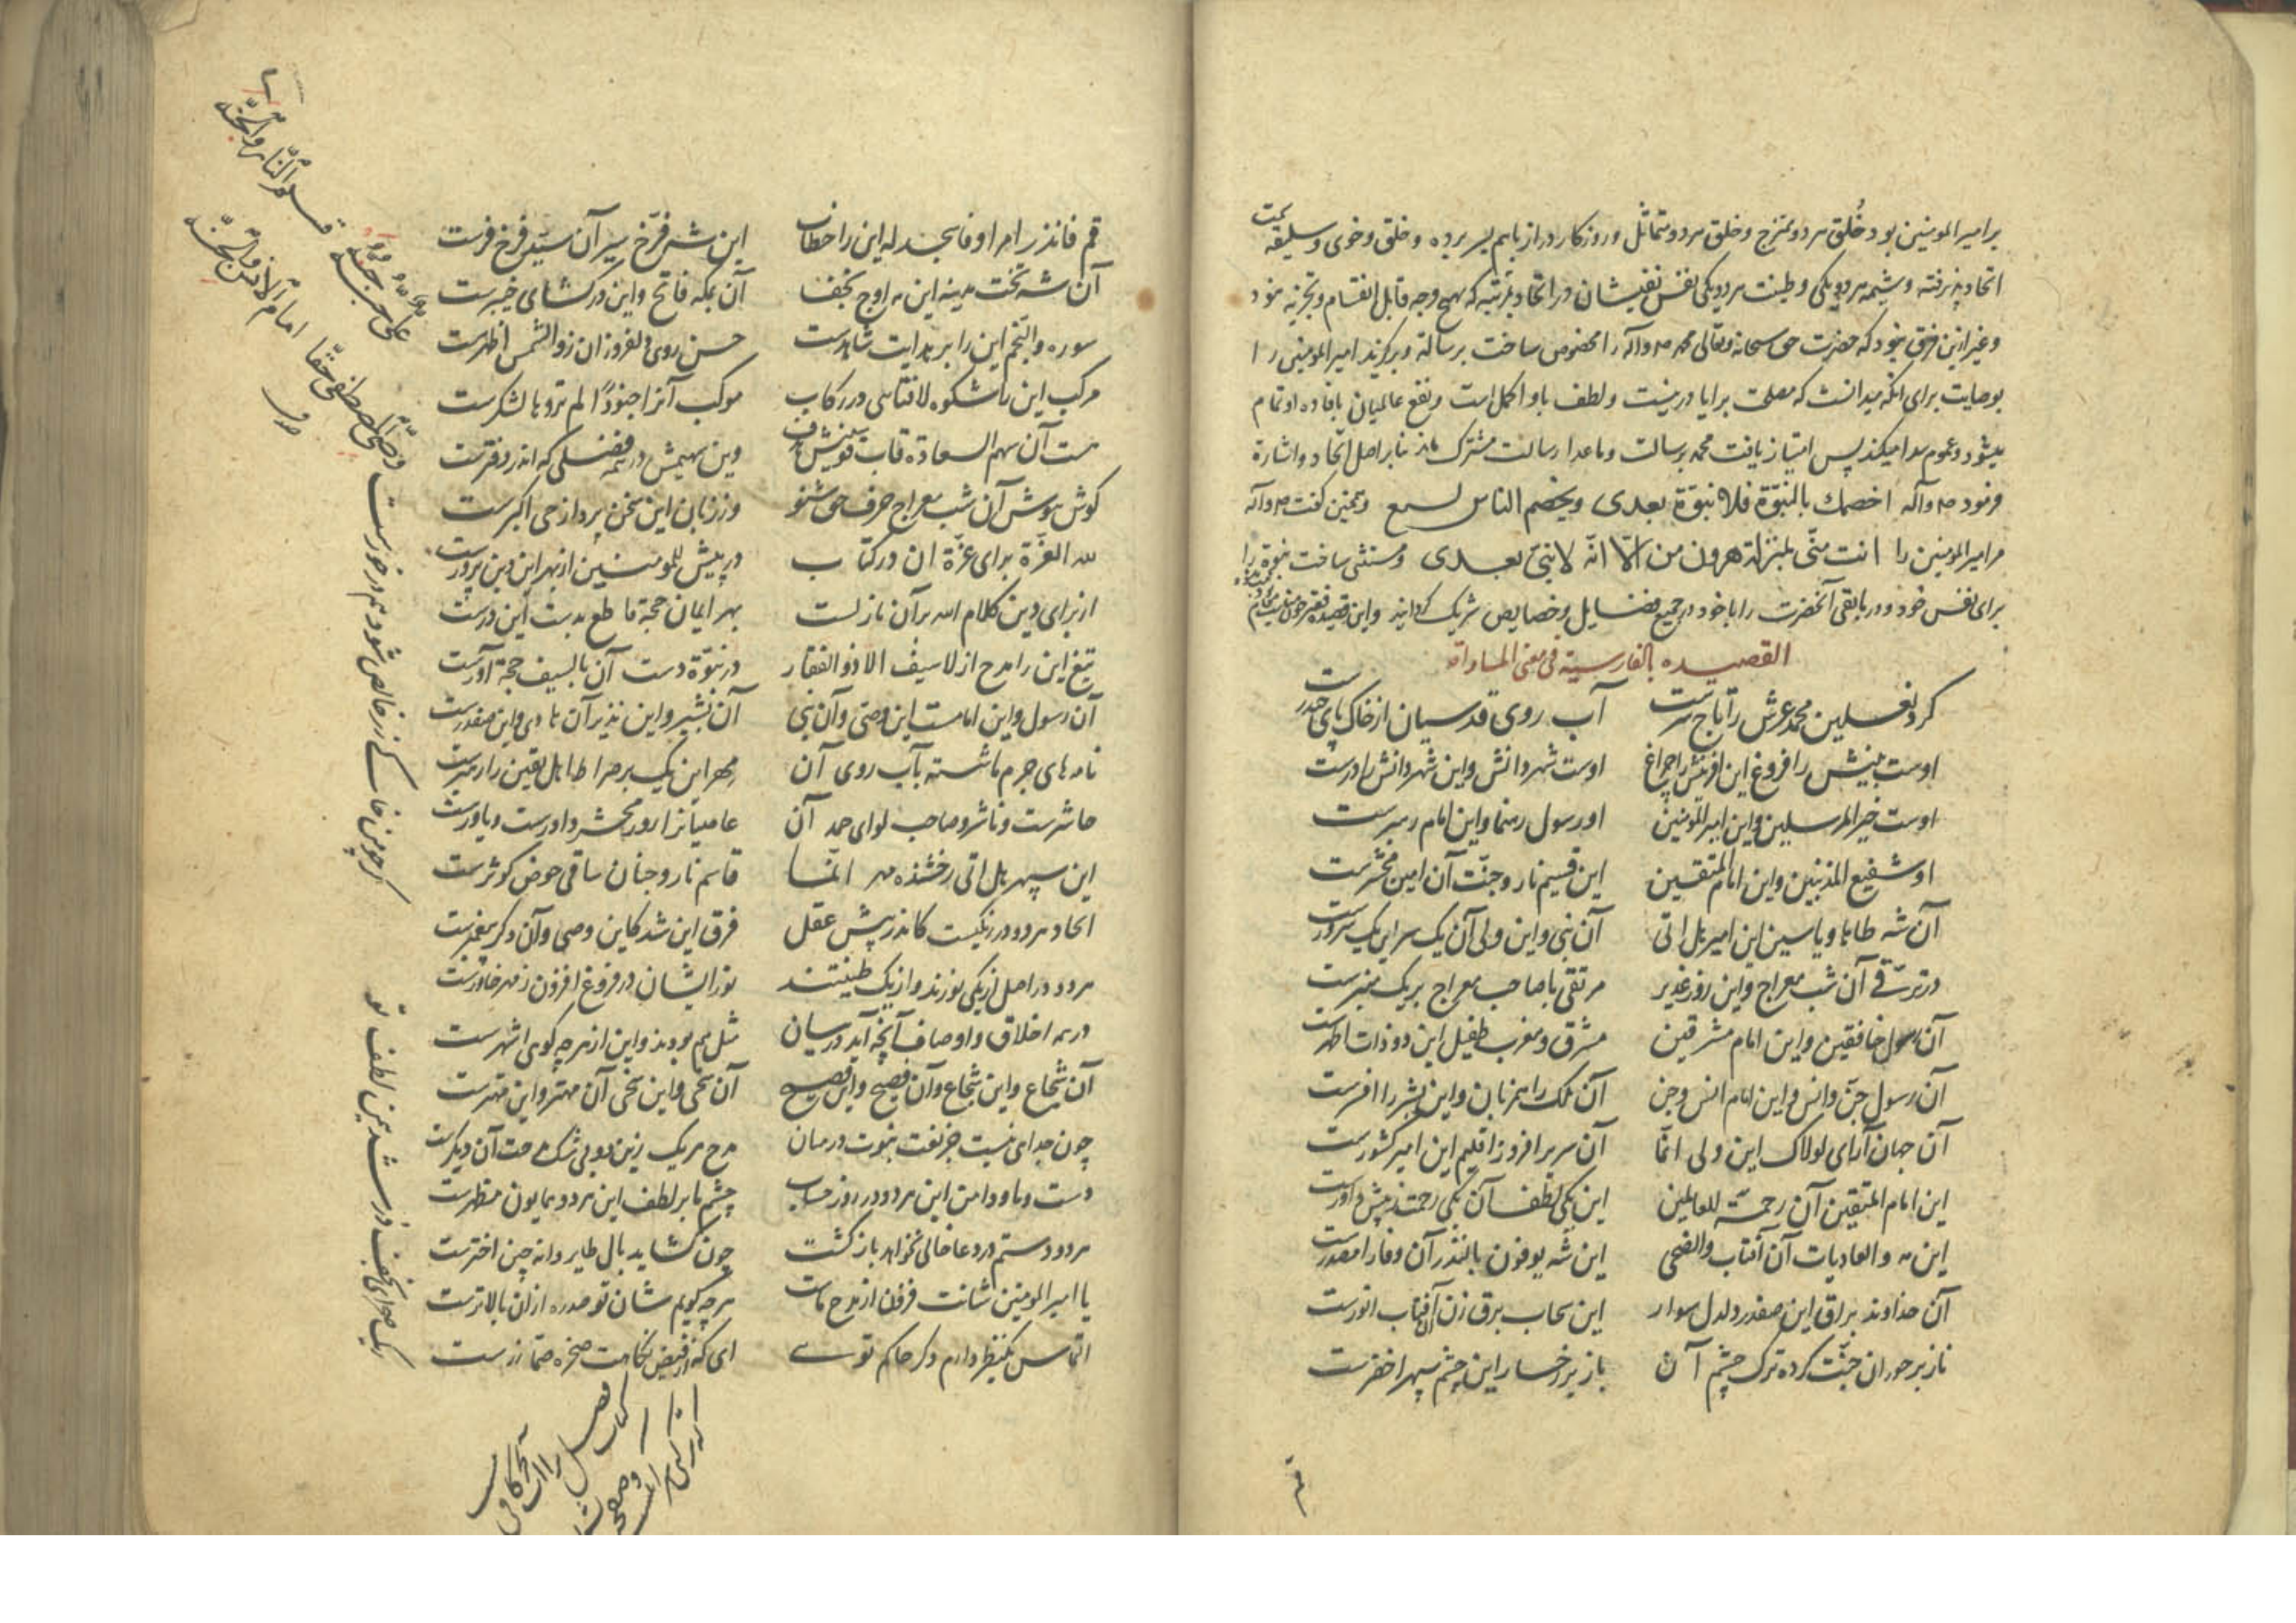 بر امیر المومنین بود خُلق هر دو ممتزج و خلق هر دو متماثل و روزکار دراز باهم بسر برده و خلق و خوی و سلیقه
اتحاد پذیرفته و شیمه هر دو یکی و طینت هر دو یکی نفس نفیسشان در اتحاد بمرتبه که بهیچ وجه قابل انقسام و تجزیه نبود
و غیر ازین فرق نبود که حضرت حق سبحانه و تعالی محمد ص وآله را مخصوص ساخت برسالة و برکزید امیر المومنین را
بوصایت برای انکه میدانست که مصلحت برایا درینست و لطف باو اکمل است و نفع عالمیان بافاده او تمام
میشود و عموم پیدا میکند پس امتیاز یافت محمد برسالت و ماعدا رسالت مشترک ماند بنابر اصل اتحاد و اشارة
فرمود ص وآله اخصمك بالنبوّة فلا نبوّة بعدی وتخصم الناس بسبع و همچنین گفت ص وآله
مر امیر المومنین را انت منّی بمنزلة هرون من الّا انّه لا نبیّ بعدی و مستثنی ساخت نبوة را
برای نفس خود و در باقی آنحضرت را با خود در جمیع فضایل و خصایص شریک کردانید و این قصیده
القصیده بالفارسیة فی معنی المساواة
کرد نعلین محمد عرش را تاج سرست آب روی قدسیان از خاک پای حیدرست
اوست بینش را فروغ این افرینش را چراغ اوست شهر دانش و این شهر دانش را درست
اوست خیر المرسلین و این امیر المومنین او رسول رهنما و این امام رهبرست
او شفیع المذنبین و این امام المتقین این قسیم نار و جنّت آن امین محشرست
آن شه طاها و یاسین این امیر هل اتی آن نبی و این ولی آن یک سر این یک سرورست
در ترقی آن شب معراج و این روز غدیر مرتقی با صاحب معراج بر یک منبرست
آن رسول خافقین و این امام مشرقین مشرق و مغرب طفیل این دو ذات اطهرست
آن رسول جنّ و انس و این امام انس و جن آن ملک را مرزبان و این بشر را افسرست
آن جهان آرای لولاک این ولی انّما آن سریر افروز اقلیم این امیر کشورست
این امام المتقین آن رحمة للعالمین این یکی لطف آن یکی رحمت ز پیش داورست
این مه و العادیات آن آفتاب والضحی این شه یوفون بالنذر آن وفا را مصدرست
آن خداوند براق این صفدر دلدل سوار این سحاب برق زن آن آفتاب انورست
ناز بر حوران جنّت کرده ترک چشم آن باز بر رخسار این چشم سپهر اخضرست
قم
قم فانذر امر او فاسجد له این را خطاب این شه فرّخ سیر آن سیّد فرخ فرست
آن شه تخت مدینه این مه اوج نجف آن بمکه فاتح و این در کشای خیبرست
سوره والنجم این را بر هدایت شاهدست حسن روی دلفروز ان ز والشمس اظهرست
مرکب این با شکوه لافتاهی در رکاب موکب آنرا جنودًا لم تروها لشکرست
هست آن سهم السعاده قاب قوسینش هدف وین سهیمش در همه فضلی که اندر دفترست
کوش هوش آن شب معراج حرف حق شنو وز زبان این سخن پرداز حی اکبرست
لله العزّة برای عزّة ان در کتاب در پیش للمومنین از بهر این دین پرورست
از برای دین کلام الله بر آن نازلست بهر ایمان حجة قاطع بدست این درست
تیغ این را مدح از لا سیف الا ذوالفقار در نبوّة دست آن بالسیف حجة آورست
آن رسول و این امامست این وصی و آن نبی آن بشیر و این نذیر آن هادی و این صفدرست
نامه های جرم ما شسته بآب روی آن مهر این یک بر صراط اهل یقین را رهبرست
حاشرست و ناشر و صاحب لوای حمد آن عاصیانرا روز محشر داورست و یاورست
این سپهر هل اتی رخشنده مهر انّما قاسم نار و جنان ساقی حوض کوثرست
اتحاد هر دو در زنکیست کاندر پیش عقل فرق این شد کاین وصی و آن دکر پیغمبرست
هر دو در اصل از یکی نورند و از یک طینتند نور ایشان در فروغ افزون ز مهر خاورست
در همه اخلاق و اوصاف آنچه آید در میان مثل هم بودند و این از هر چه کوی اشهرست
آن شجاع و این شجاع و آن فصیح و این فصیح آن سخی و این سخی آن مهتر و این مهترست
چون جدای نیست جز نعت نبوت در میان مدح هر یک زین دو بی شک مدحت آن دیکرست
دست ما و دامن این هر دو در روز حساب چشم ما بر لطف این هر دو همایون منظرست
هر دو دستم در دعا خالی نخواهد بازگشت چون کشاید بال طایر دانه چین اخترست
یا امیر المومنین شانت فزون از مدح ماست هر چه کویم شان تو صد ره ازان بالاترست
التماس یکنظر دارم دکر حاکم توی ای که از فیض نکاهت صخره صمّا زرست
کر چون مس زر خالص شود هم در خورست
ریک صحرای نجف در شد یمن لطف تو
علیّ حبّه جنّة قسیم النّار والجنّة
وصیّ المصطفی حقّا امام الانس والجنّة